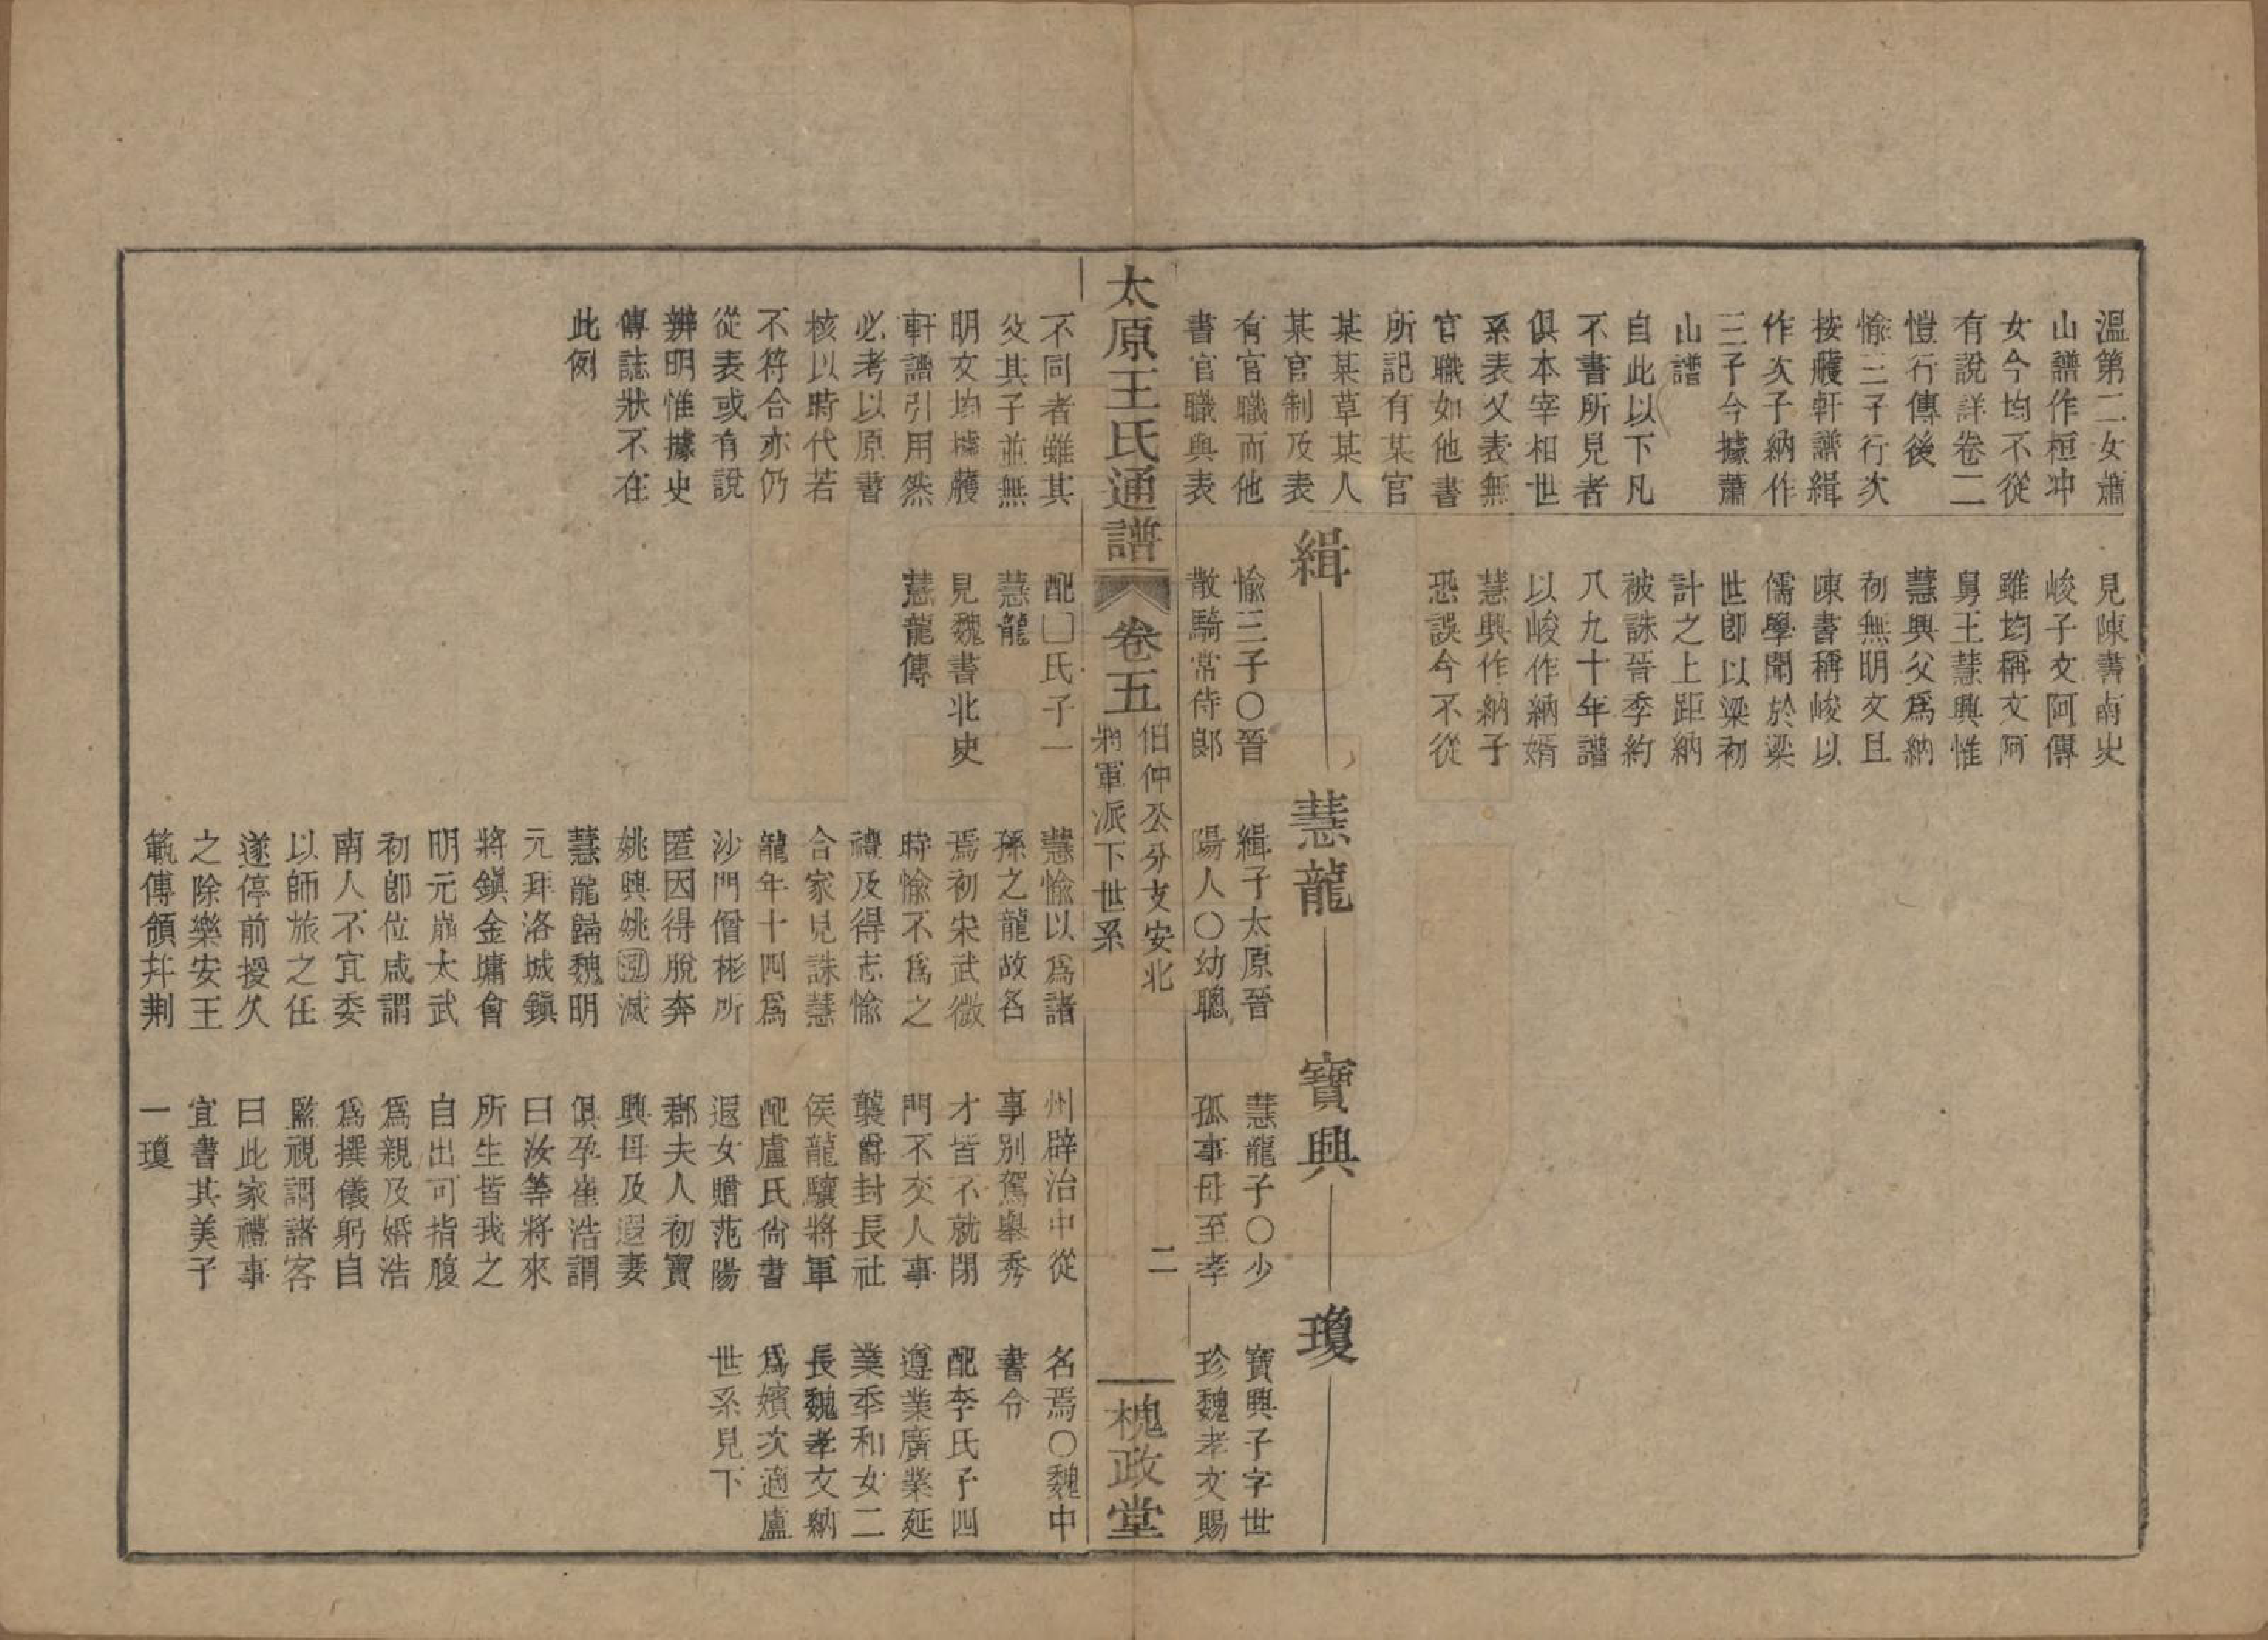 溫第二女蕭
山譜作桓冲
女今均不從
有說詳卷二
愷行傳後
愉三子行次
按䕶軒譜緝
作次子納作
三子今據蕭
山譜
自此以下凡
不書所見者
俱本宰相世
系表父表無
官職如他書
所記有某官
某某草某人
某官制及表
有官職而他
書官職與表
不同者雖其
父其子並無
明文均據䕶
軒譜引用然
必考以原書
核以時代若
不符合亦仍
從表或有說
辨明惟據史
傳誌狀不在
此例
見陳書南史
峻子文阿傳
雖均稱文阿
舅王慧興惟
慧興父爲納
初無明文且
陳書稱峻以
儒學聞於梁
世卽以梁初
計之上距納
被誅晉季約
八九十年譜
以峻作納婿
慧興作納子
恐誤今不從
緝
愉三子〇晉
散騎常侍郞
配囗氏子一
慧龍
見魏書北史
慧龍傳
慧龍
緝子太原晉
陽人〇幼聰
慧愉以爲諸
孫之龍故名
焉初宋武微
時愉不爲之
禮及得志愉
合家見誅慧
龍年十四爲
沙門僧彬所
匿因得脫奔
姚興姚泓滅
慧龍歸魏明
元拜洛城鎭
將鎭金墉會
明元崩太武
初卽位咸謂
南人不宜委
以師旅之任
遂停前授久
之除樂安王
範傳領幷荆
寶興
慧龍子〇少
孤事母至孝
州辟治中從
事別駕舉秀
才皆不就閉
門不交人事
襲爵封長社
侯龍驤將軍
配盧氏尙書
遐女贈范陽
郡夫人初寶
興母及遐妻
俱孕崔浩謂
曰汝等將來
所生皆我之
自出可指腹
爲親及婚浩
爲撰儀躬自
監視謂諸客
曰此家禮事
宜書其美子
一瓊
瓊
寶興子字世
珍魏孝文賜
名焉〇魏中
書令
配李氏子四
遵業廣業延
業季和女二
長魏孝文納
爲嬪次適盧
世系見下
太原王氏通譜
卷五
伯仲公分支安北
將軍派下世系
二
槐政堂